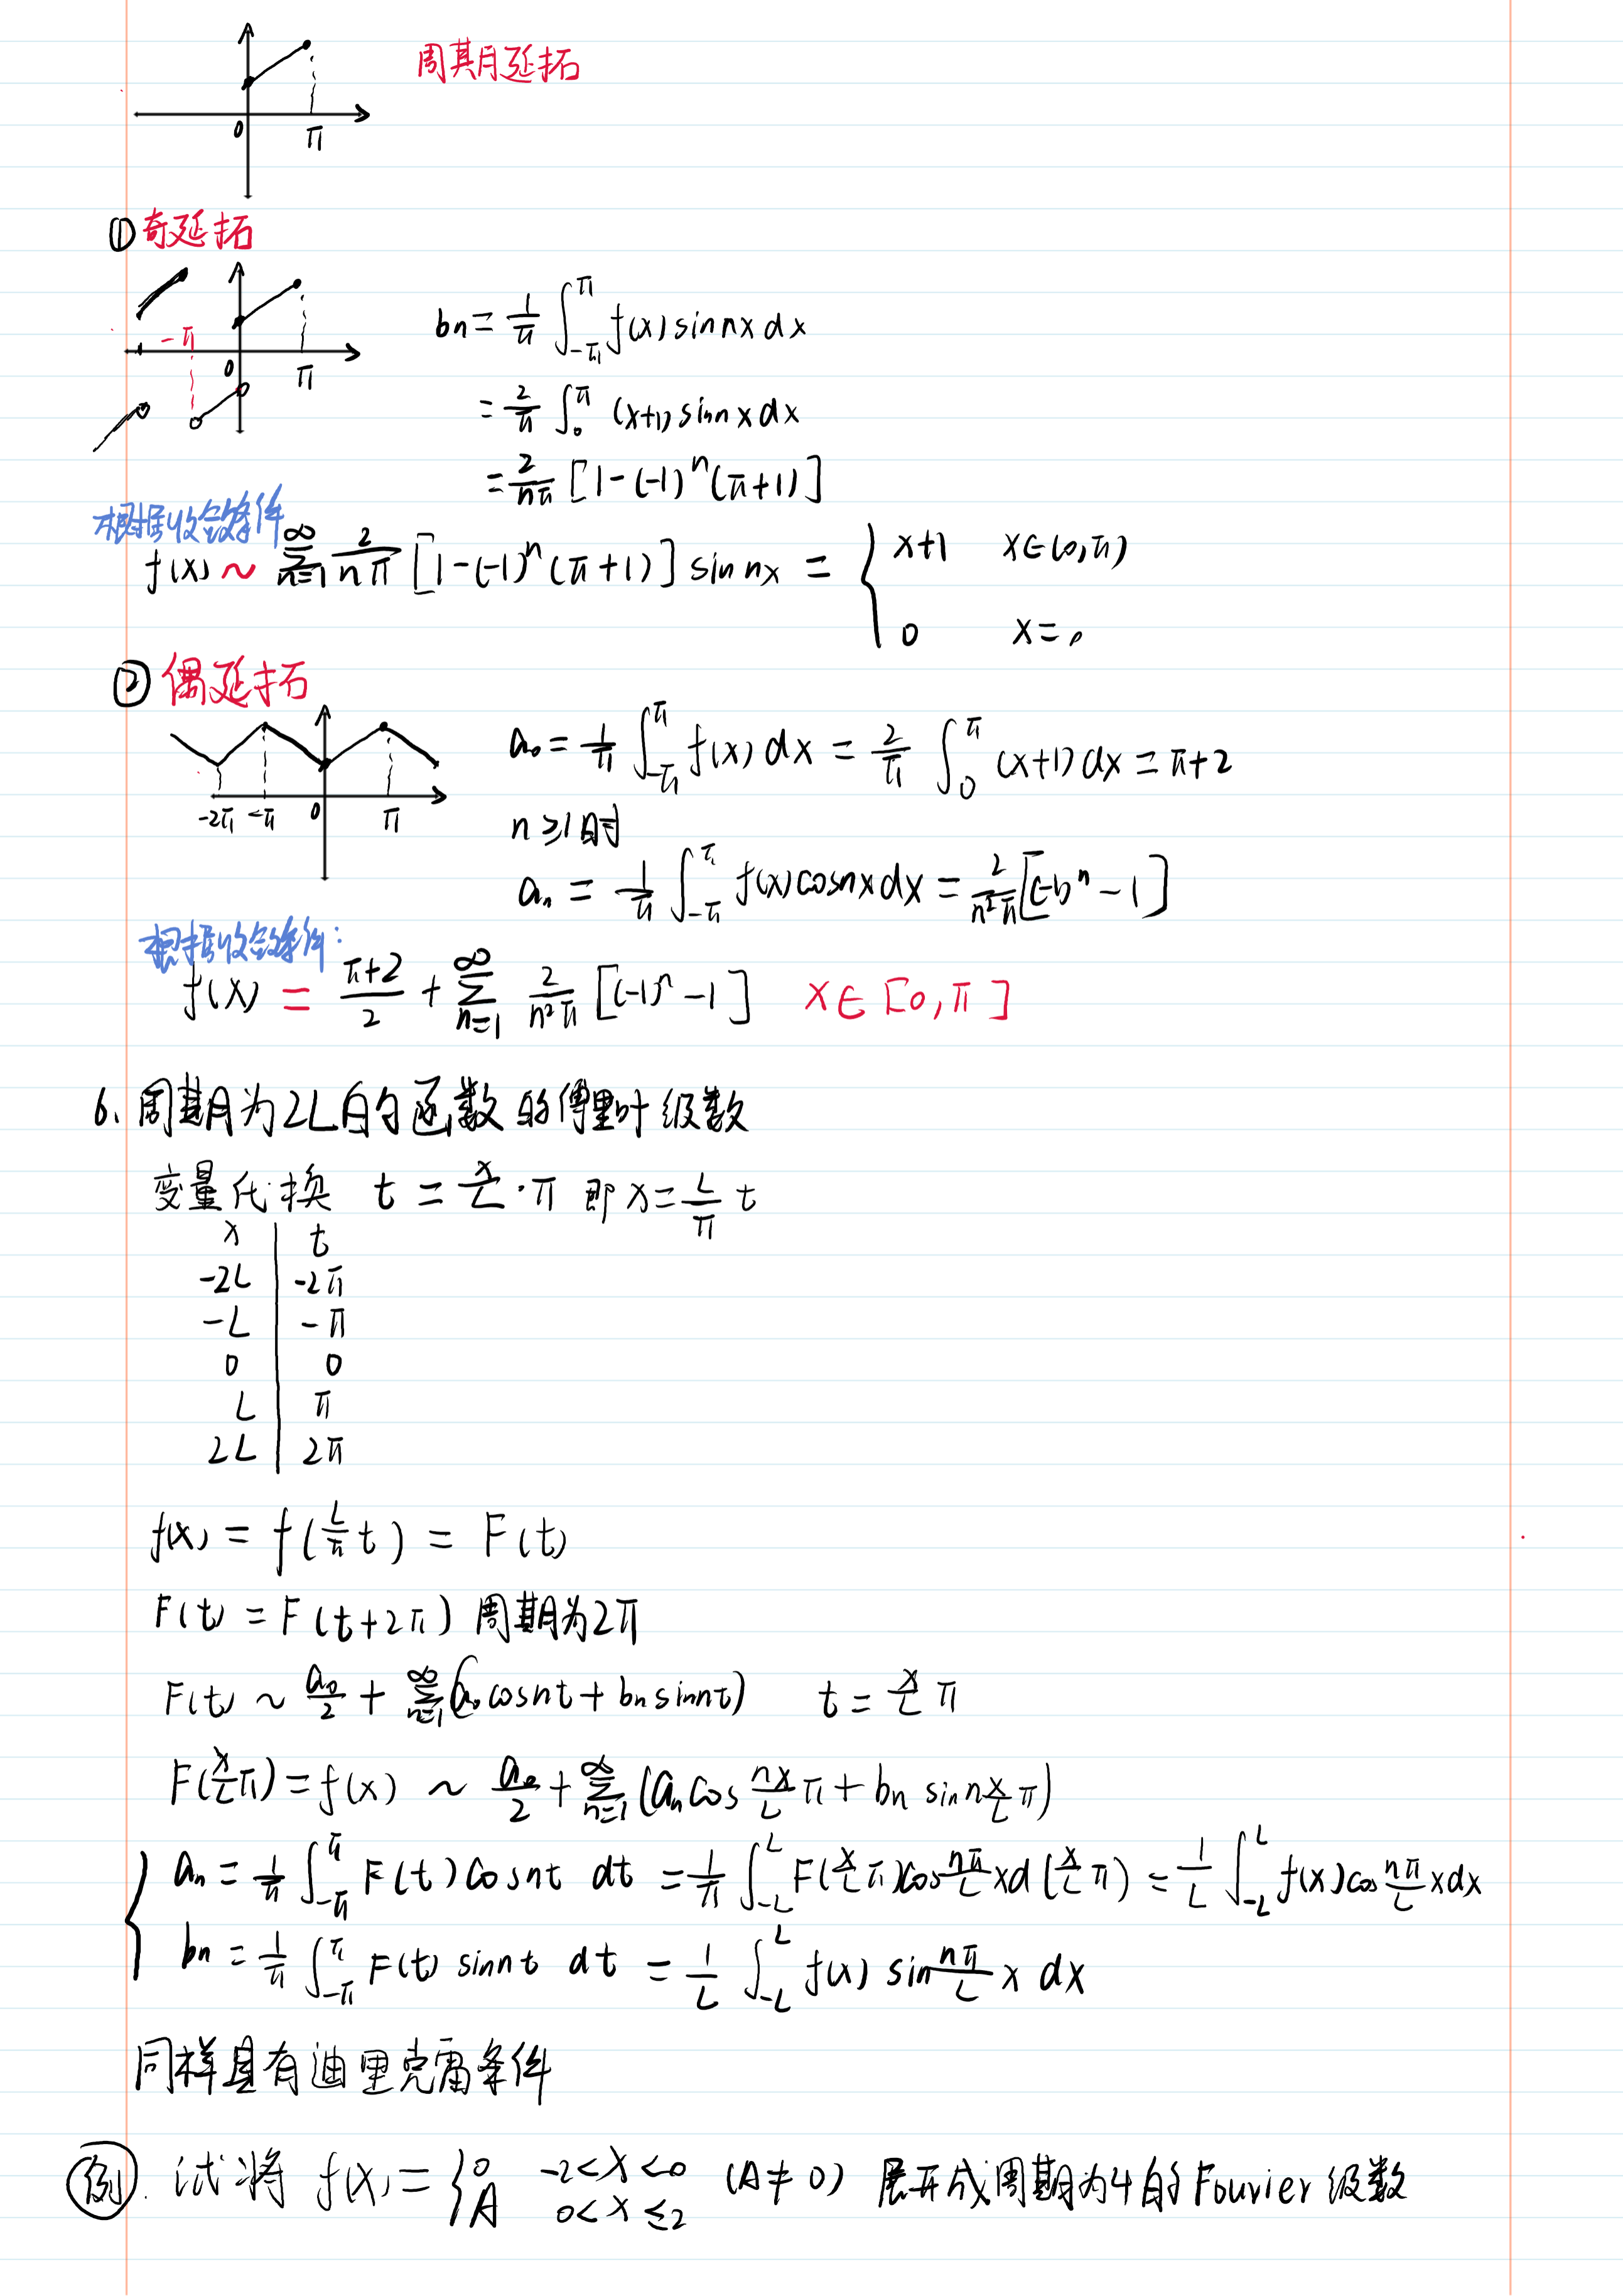 周期延拓
0 π
① 奇延拓
-π 0 π
bn = 1/π ∫_{-π}^{π} f(x) sin nx dx
= 2/π ∫_0^π (x+1) sin nx dx
= 2/(nπ) [1-(-1)^n (π+1)]
根据收敛条件
f(x) ~ ∑_{n=1}^∞ 2/(nπ) [1-(-1)^n (π+1)] sin nx = { x+1 x∈(0,π)
0 x=0
② 偶延拓
-2π -π 0 π
a₀ = 1/π ∫_{-π}^{π} f(x) dx = 2/π ∫_0^π (x+1) dx = π+2
n≥1时
an = 1/π ∫_{-π}^{π} f(x) cos nx dx = 2/(n²π) [(-1)^n - 1]
根据收敛条件:
f(x) = (π+2)/2 + ∑_{n=1}^∞ 2/(n²π) [(-1)^n - 1] x∈[0,π]
6、周期为2L的函数的傅里叶级数
变量代换 t = x/L · π 即 x = L/π t
x t
-2L -2π
-L -π
0 0
L π
2L 2π
f(x) = f(L/π t) = F(t)
F(t) = F(t+2π) 周期为2π
F(t) ~ a₀/2 + ∑_{n=1}^∞ (aₙ cos nt + bn sin nt) t = x/L π
F(x/L π) = f(x) ~ a₀/2 + ∑_{n=1}^∞ (an cos nx/L π + bn sin n x/L π)
{ an = 1/π ∫_{-π}^{π} F(t) cos nt dt = 1/π ∫_{-L}^{L} F(x/L π) cos nπ/L x d(x/L π) = 1/L ∫_{-L}^{L} f(x) cos nπ/L x dx
bn = 1/π ∫_{-π}^{π} F(t) sin nt dt = 1/L ∫_{-L}^{L} f(x) sin nπ/L x dx
同样具有迪里克雷条件
例. 试将 f(x) = { 0 -2<x<0 (A≠0) 展开成周期为4的Fourier级数
A 0<x≤2